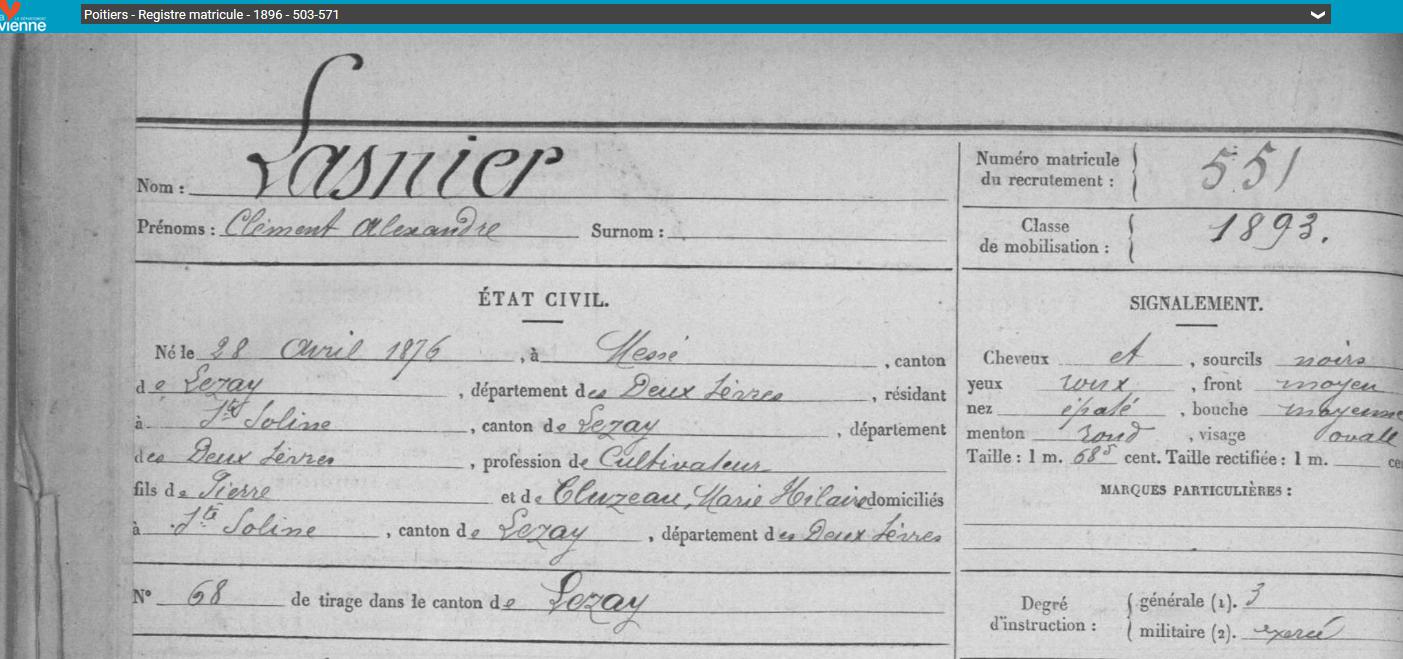 la
LE DÉPARTEMENT
vienne
Poitiers - Registre matricule - 1896 - 503-571
Nom : Lasnier
Prénoms : Clément Alexandre Surnom :
Numéro matricule du recrutement : 551
Classe de mobilisation : 1893.
ÉTAT CIVIL.
Né le 28 Avril 1876, à Messé, canton
de Lezay, département des Deux Sèvres, résidant
à Ste Soline, canton de Lezay, département
des Deux Sèvres, profession de Cultivateur
fils de Pierre et de Cluzeau, Marie Hilaire domiciliés
à Ste Soline, canton de Lezay, département des Deux Sèvres
N° 68 de tirage dans le canton de Lezay
SIGNALEMENT.
Cheveux et, sourcils noirs
yeux roux, front moyen
nez épaté, bouche moyenne
menton rond, visage ovale
Taille : 1 m. 685 cent. Taille rectifiée : 1 m. ce
MARQUES PARTICULIÈRES :
Degré d'instruction :
générale (1). 3
militaire (2). exercé